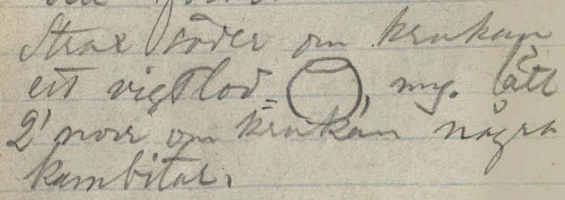 Strax söder om krukan
ett vigtlod = , myc. lätt
2' norr om krukan några
kambitar.